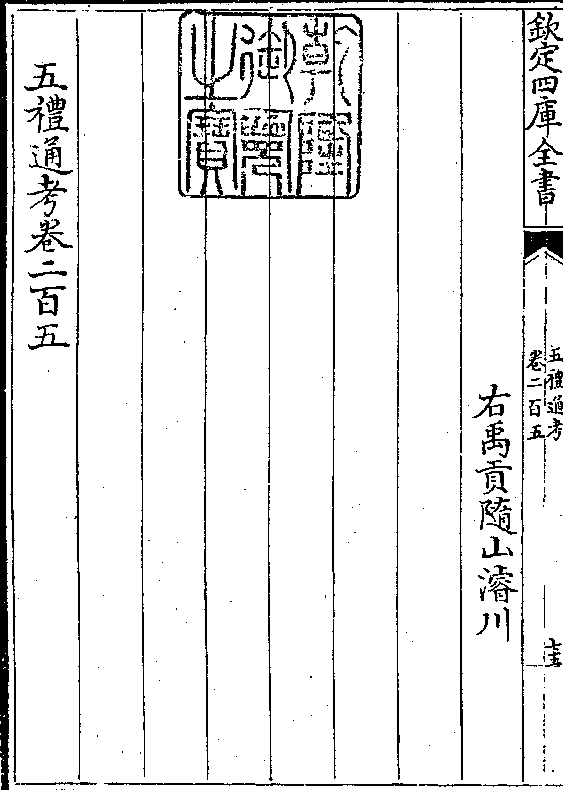 欽定四庫全書
五禮通考
卷二百五
右禹貢隨山濬川
乾隆
御覽
之寶
五禮通考卷二百五